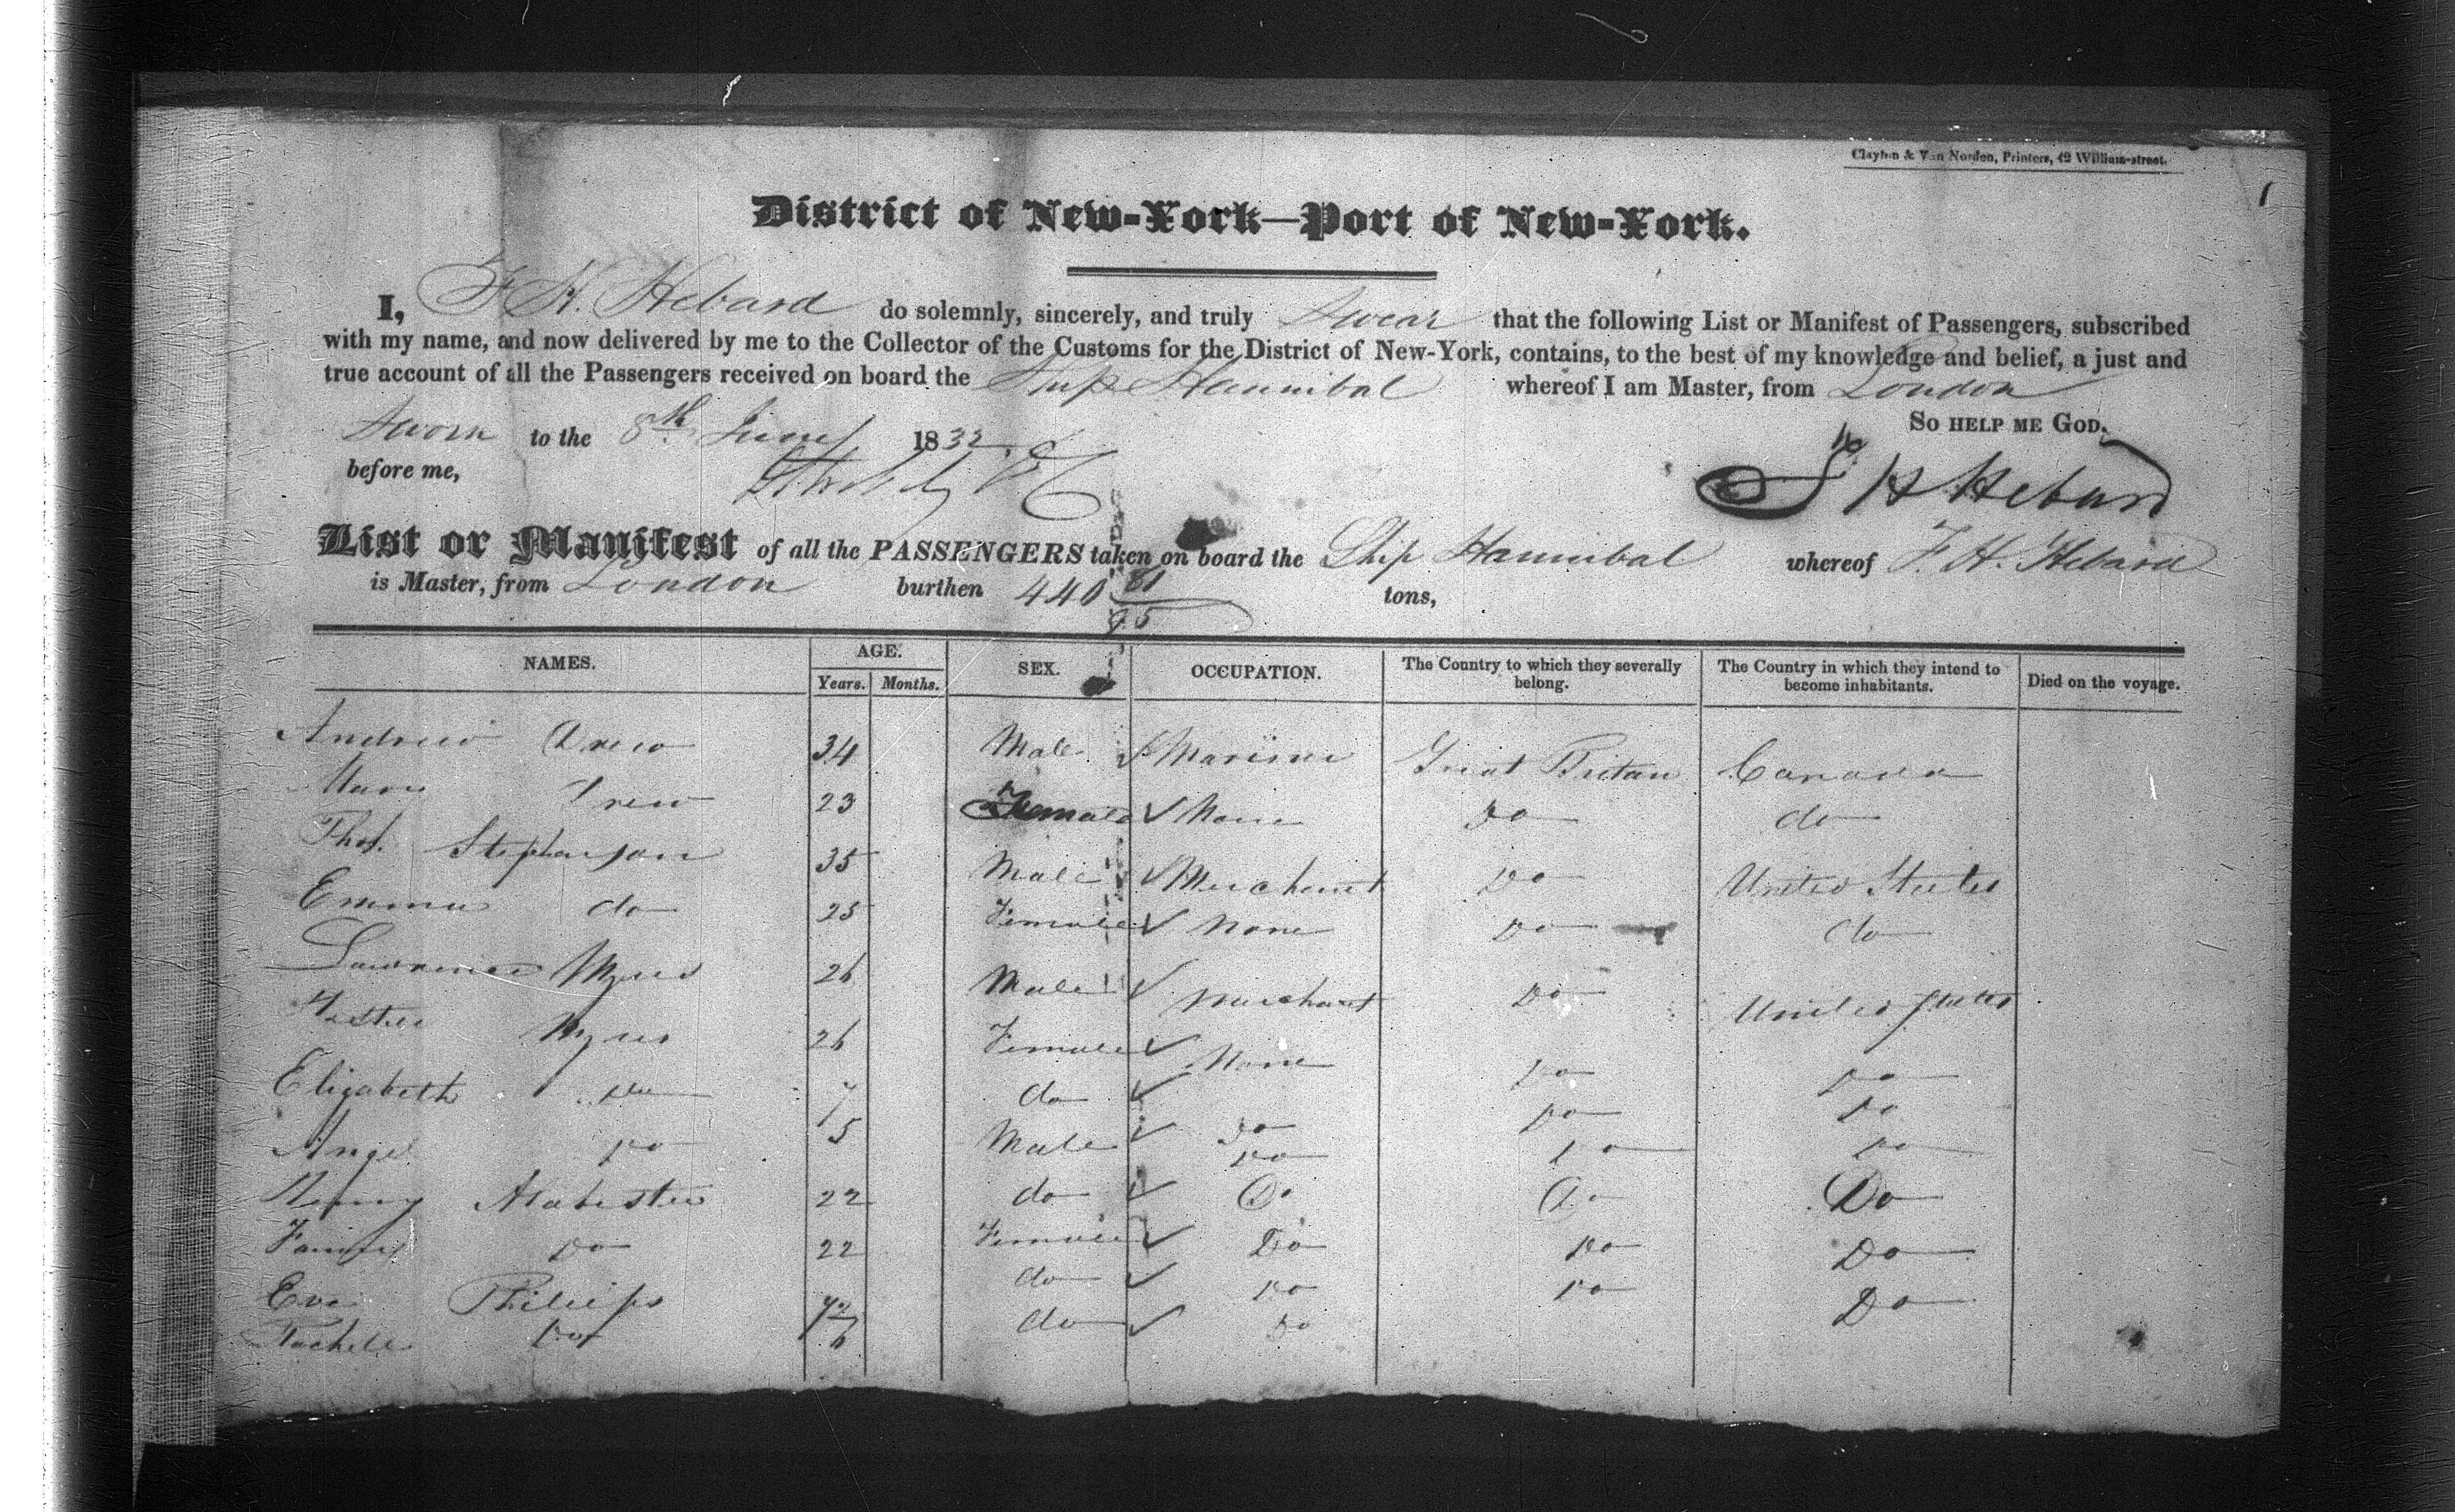 Clayton & Van Norden, Printers, 42 William-street.
1
District of New-York—Port of New-York.
I, F H. Hebard do solemnly, sincerely, and truly Swear that the following List or Manifest of Passengers, subscribed
with my name, and now delivered by me to the Collector of the Customs for the District of New-York, contains, to the best of my knowledge and belief, a just and
true account of all the Passengers received on board the Ship Hannibal whereof I am Master, from London
So help me God.
Sworn to the 8th June 1832
before me,
F H Hebard
List or Manifest of all the PASSENGERS taken on board the Ship Hannibal whereof F. H. Hebard
is Master, from London burthen 440 81/95 tons,
NAMES. AGE. Years. Months. SEX. OCCUPATION. The Country to which they severally belong. The Country in which they intend to become inhabitants. Died on the voyage.
Andrew Drew 34 Male Marine Great Britan Canada
Drew 23 Female None Do do
Thos. Stephenson 35 Male Merchant Do United States
Emma do 25 Female None Do do
Lawrence Myers 26 Male Merchant Do United States
Myers 26 Female None Do Do
Elizabeth Do 7 do Do Do Do
Angel Do 5 Male Do Do Do
Henry 22 do Do Do Do
Do 22 Female Do Do Do
Eva Philips do Do Do Do
Do 6 do Do